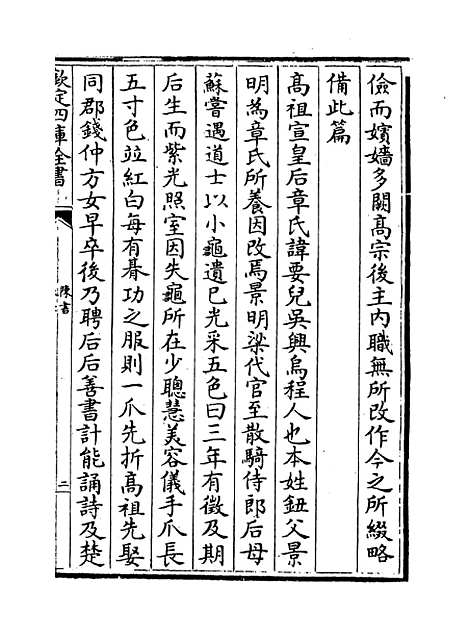 儉而嬪嬙多闕高宗後主内職無所改作今之所綴略
備此篇
高祖宣皇后章氏諱要兒吳興烏程人也本姓鈕父景
明為章氏所養因改焉景明梁代官至散騎侍郎后母
蘇嘗遇道士以小龜遺已光采五色曰三年有徵及期
后生而紫光照室因失龜所在少聰慧美容儀手爪長
五寸色竝紅白每有朞功之服則一爪先折高祖先娶
同郡錢仲方女早卒後乃聘后后善書計能誦詩及楚
欽定四庫全書
陳書
二